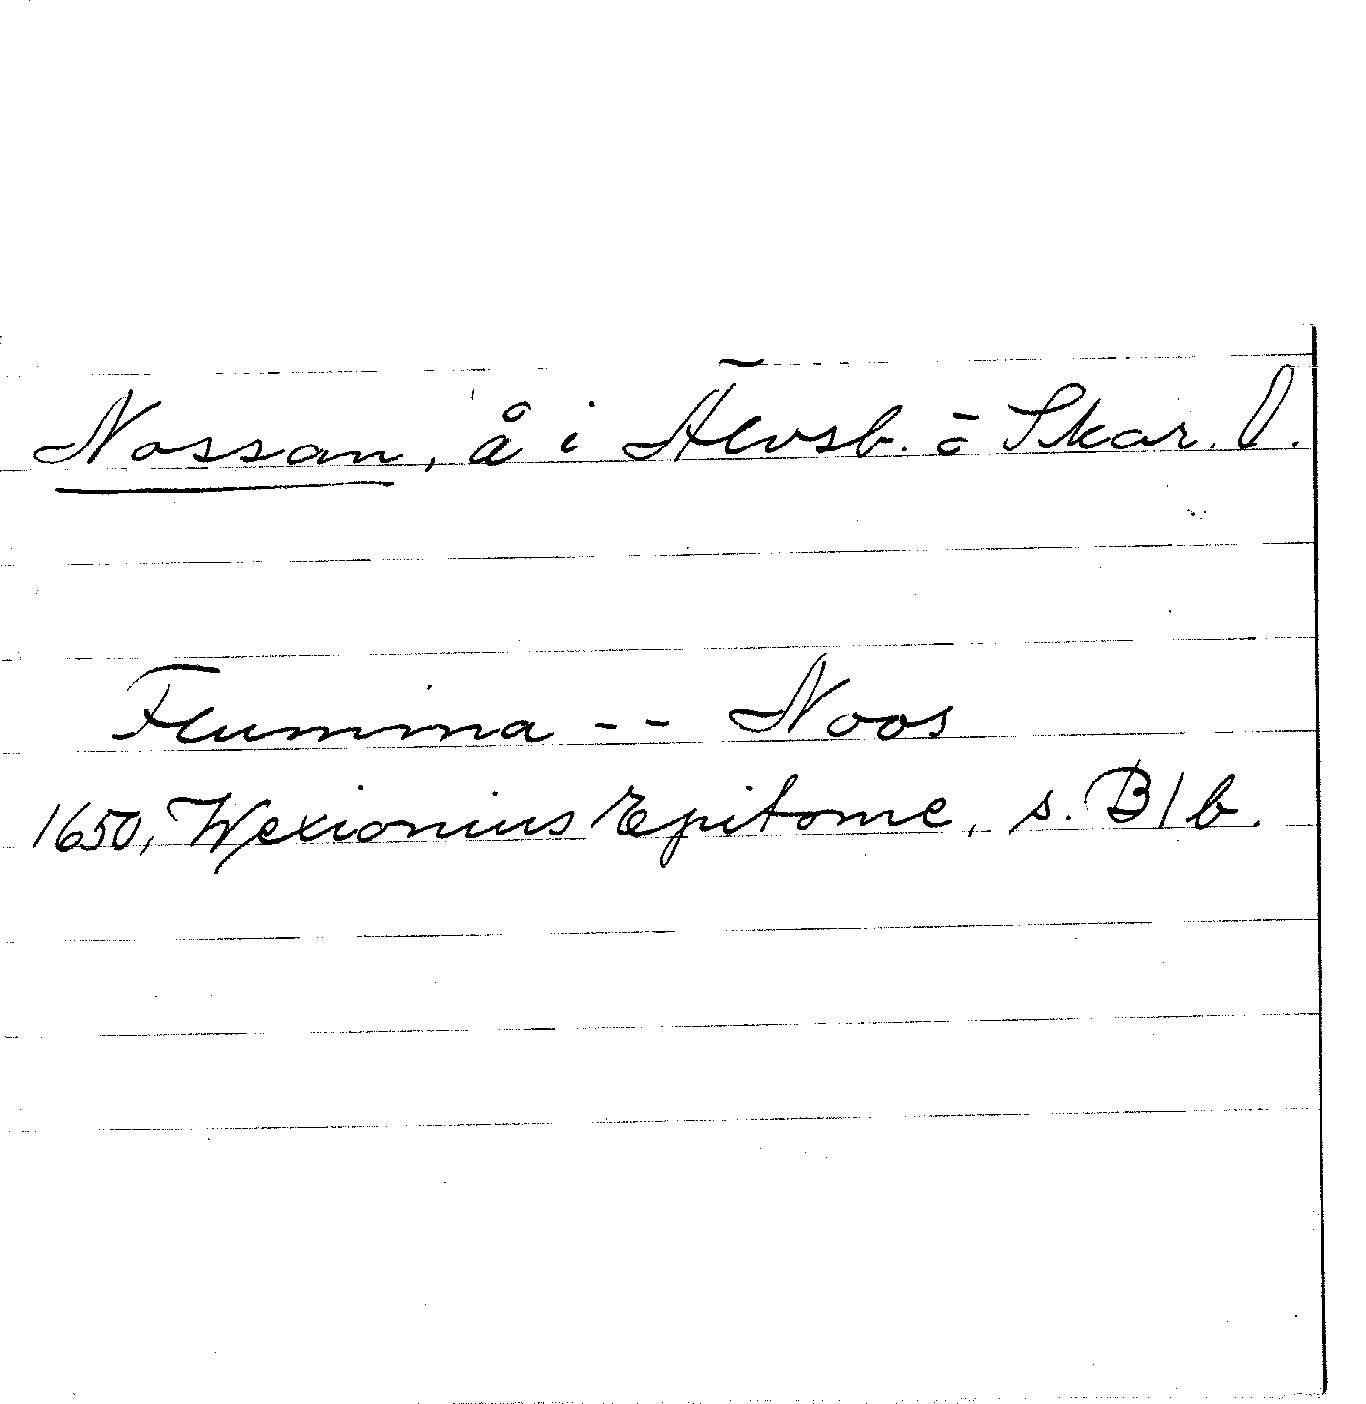 Nossan, å i Älvsb. o Skar. l.
Flumina -- Noos
1650, Wexionius Epitome, s. B1b.